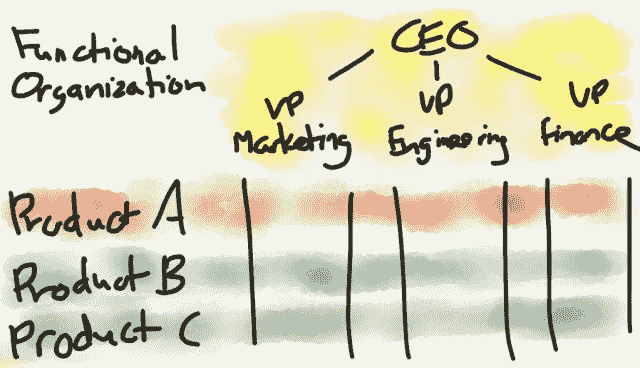 Functional
Organization
CEO
VP
Marketing
VP
Engineering
VP
Finance
Product A
Product B
Product C